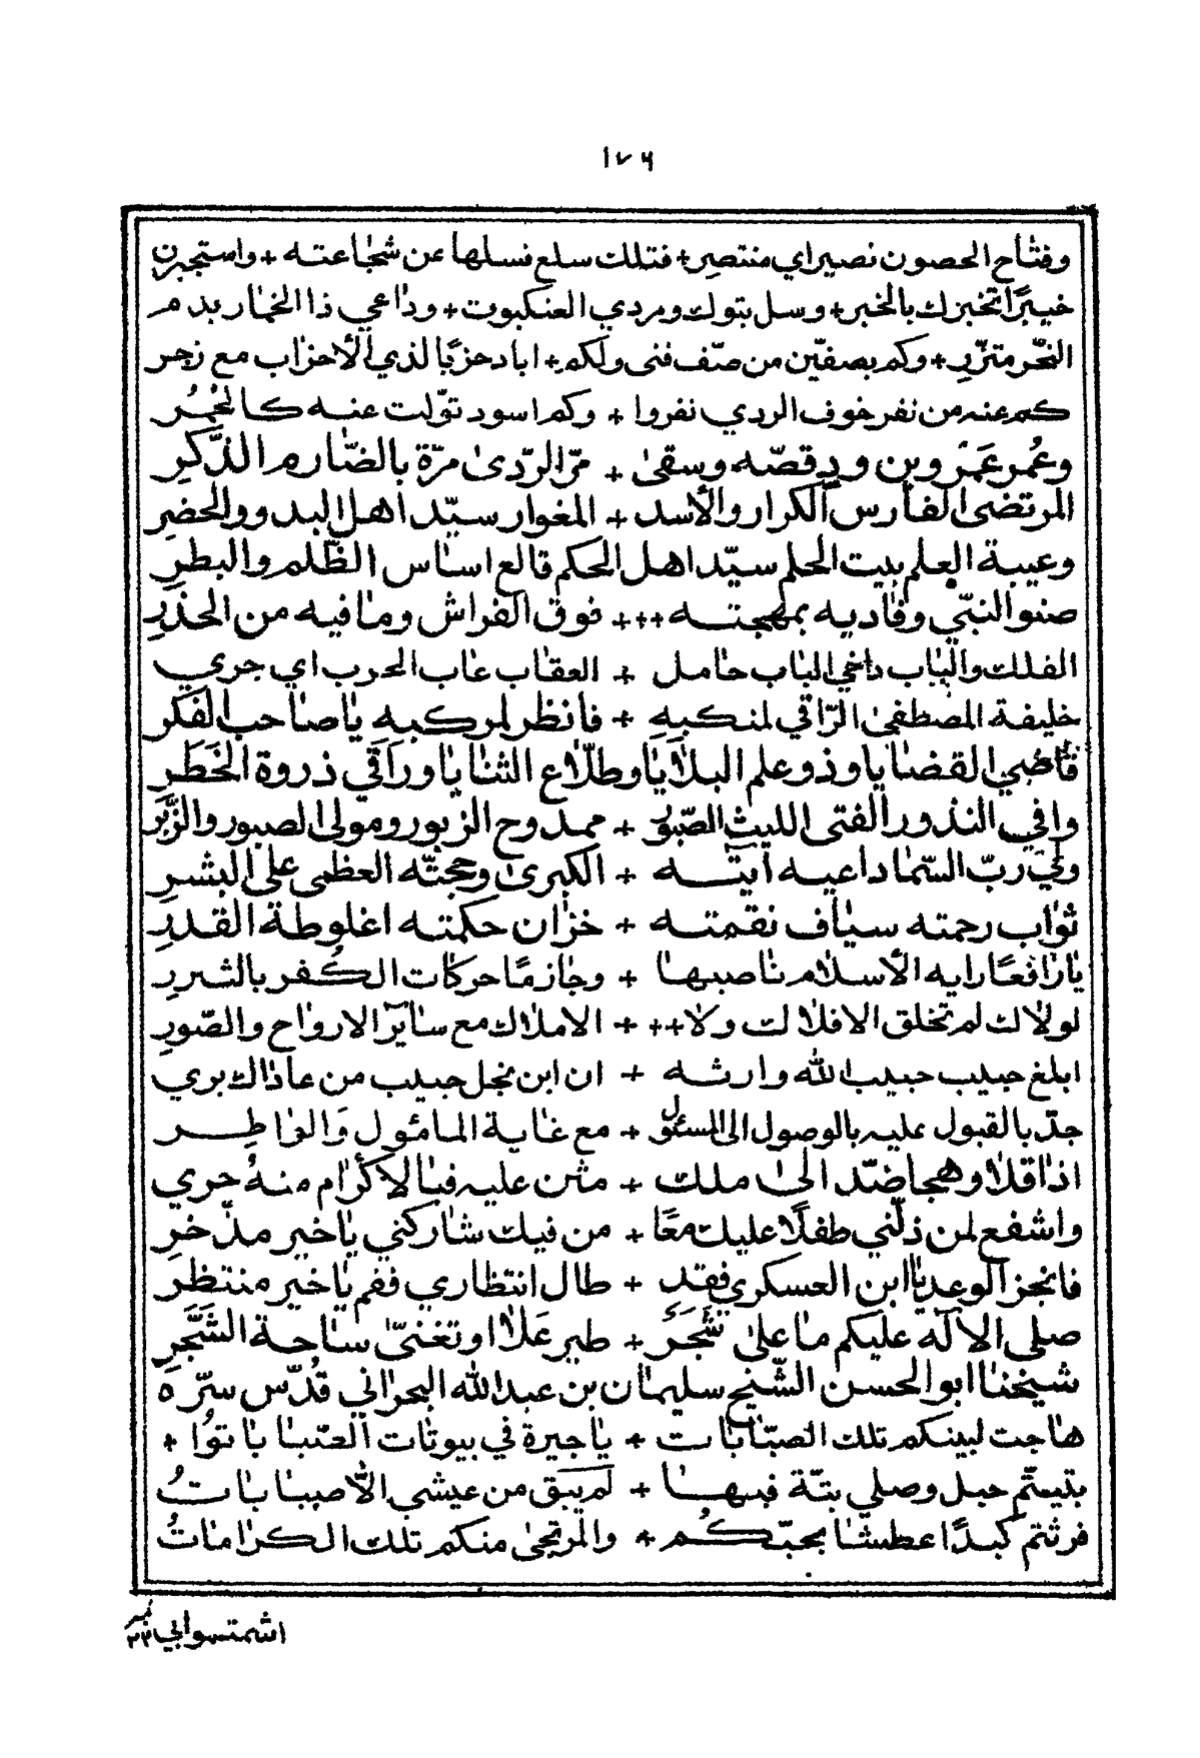 ١٧٦
وفتّاح الحصون نصير اي منتصر + فتلك سلع فسلها عن شجاعته + واستجرن
خيبرًا تخبرك بالخبر + وسل بتوك ومردي العنكبوت + وداعي ذا الخمار بدم
النحر متزر + وكم بصفّين من صفّ فنى ولكم + اباد حزبًا لذي الأحزاب مع زجر
كم عنه من نفر خوف الردي نفروا + وكم اسود تولّت عنه كالحُمُر
وعُمر عَمرو بن ود قصّه وسقىٰ + مرّ الرّدىٰ مرّة بالصّارم الذّكر
المرتضى الفارس الكرار والأسد + المغوار سيّد اهل البدو والحضر
وعيبة العلم بيت الحلم سيّد اهل الحكم قالع اساس الظّلم والبطر
صنو النبّي وفاديه بمهجته +++ فوق الفراش وما فيه من الحذر
الفلك والباب داحي الباب حامل + العقاب عاب الحرب اي جري
خليفة المصطفىٰ الرّاقي لمنكبه + فانظر لمركبه يا صاحب الفكر
قاضي القضايا وذو علم البلايا وطلّاع الثنايا وراقي ذروة الخَطَر
وافي النذور الفتى الليث الصّبور + ممدوح الزبور ومولى الصبور والزّبر
وليّ ربّ السّما داعيه آيته + الكبرىٰ وحجّته العظمى على البشر
ثواب رحمته سيّاف نقمته + خزان حكمته اغلوطة القدر
يا رافعًا رايه الأسلام ناصبها + وجازمًا حركات الكُفر بالشرر
لولاك لم تخلق الافلاك ولا ++ + الاملاك مع سائر الارواح والصّور
ابلغ حبيب حبيب الله وارثه + ان ابن نجل حبيب من عاذاك بري
جدّ بالقبول عليه بالوصول الى المسئول + مع غاية المأمول وَالوَاطِر
اذا قلا وهجا ضدّ الىٰ ملك + مثن عليه فبالاكرام منهُ حري
واشفع لمن ذلّني طفلًا عليك معًا + من فيك شاركني يا خير مدّخر
فانجز الوعد يا ابن العسكري فقد + طال انتظاري فقم يا خير منتظر
صلى الاله عليكم ما علىٰ شَجَرٍ + طير عَلا او تغنّىٰ ساحة الشَّجَر
شيخنا ابو الحسن الشّيخ سليمان بن عبدالله البحراني قُدّس سرّه
هاجت لبينكم تلك الصّبابات + يا جيرة في بيوتات العبا باتوا +
بتيتّم حبل وصلي بتّة فبها + لم يبق من عيشي الّا صبباباتُ
فرثتم كبدًا عطشا بحبّكُم + والمرتجىٰ منكم تلك الكراماتُ